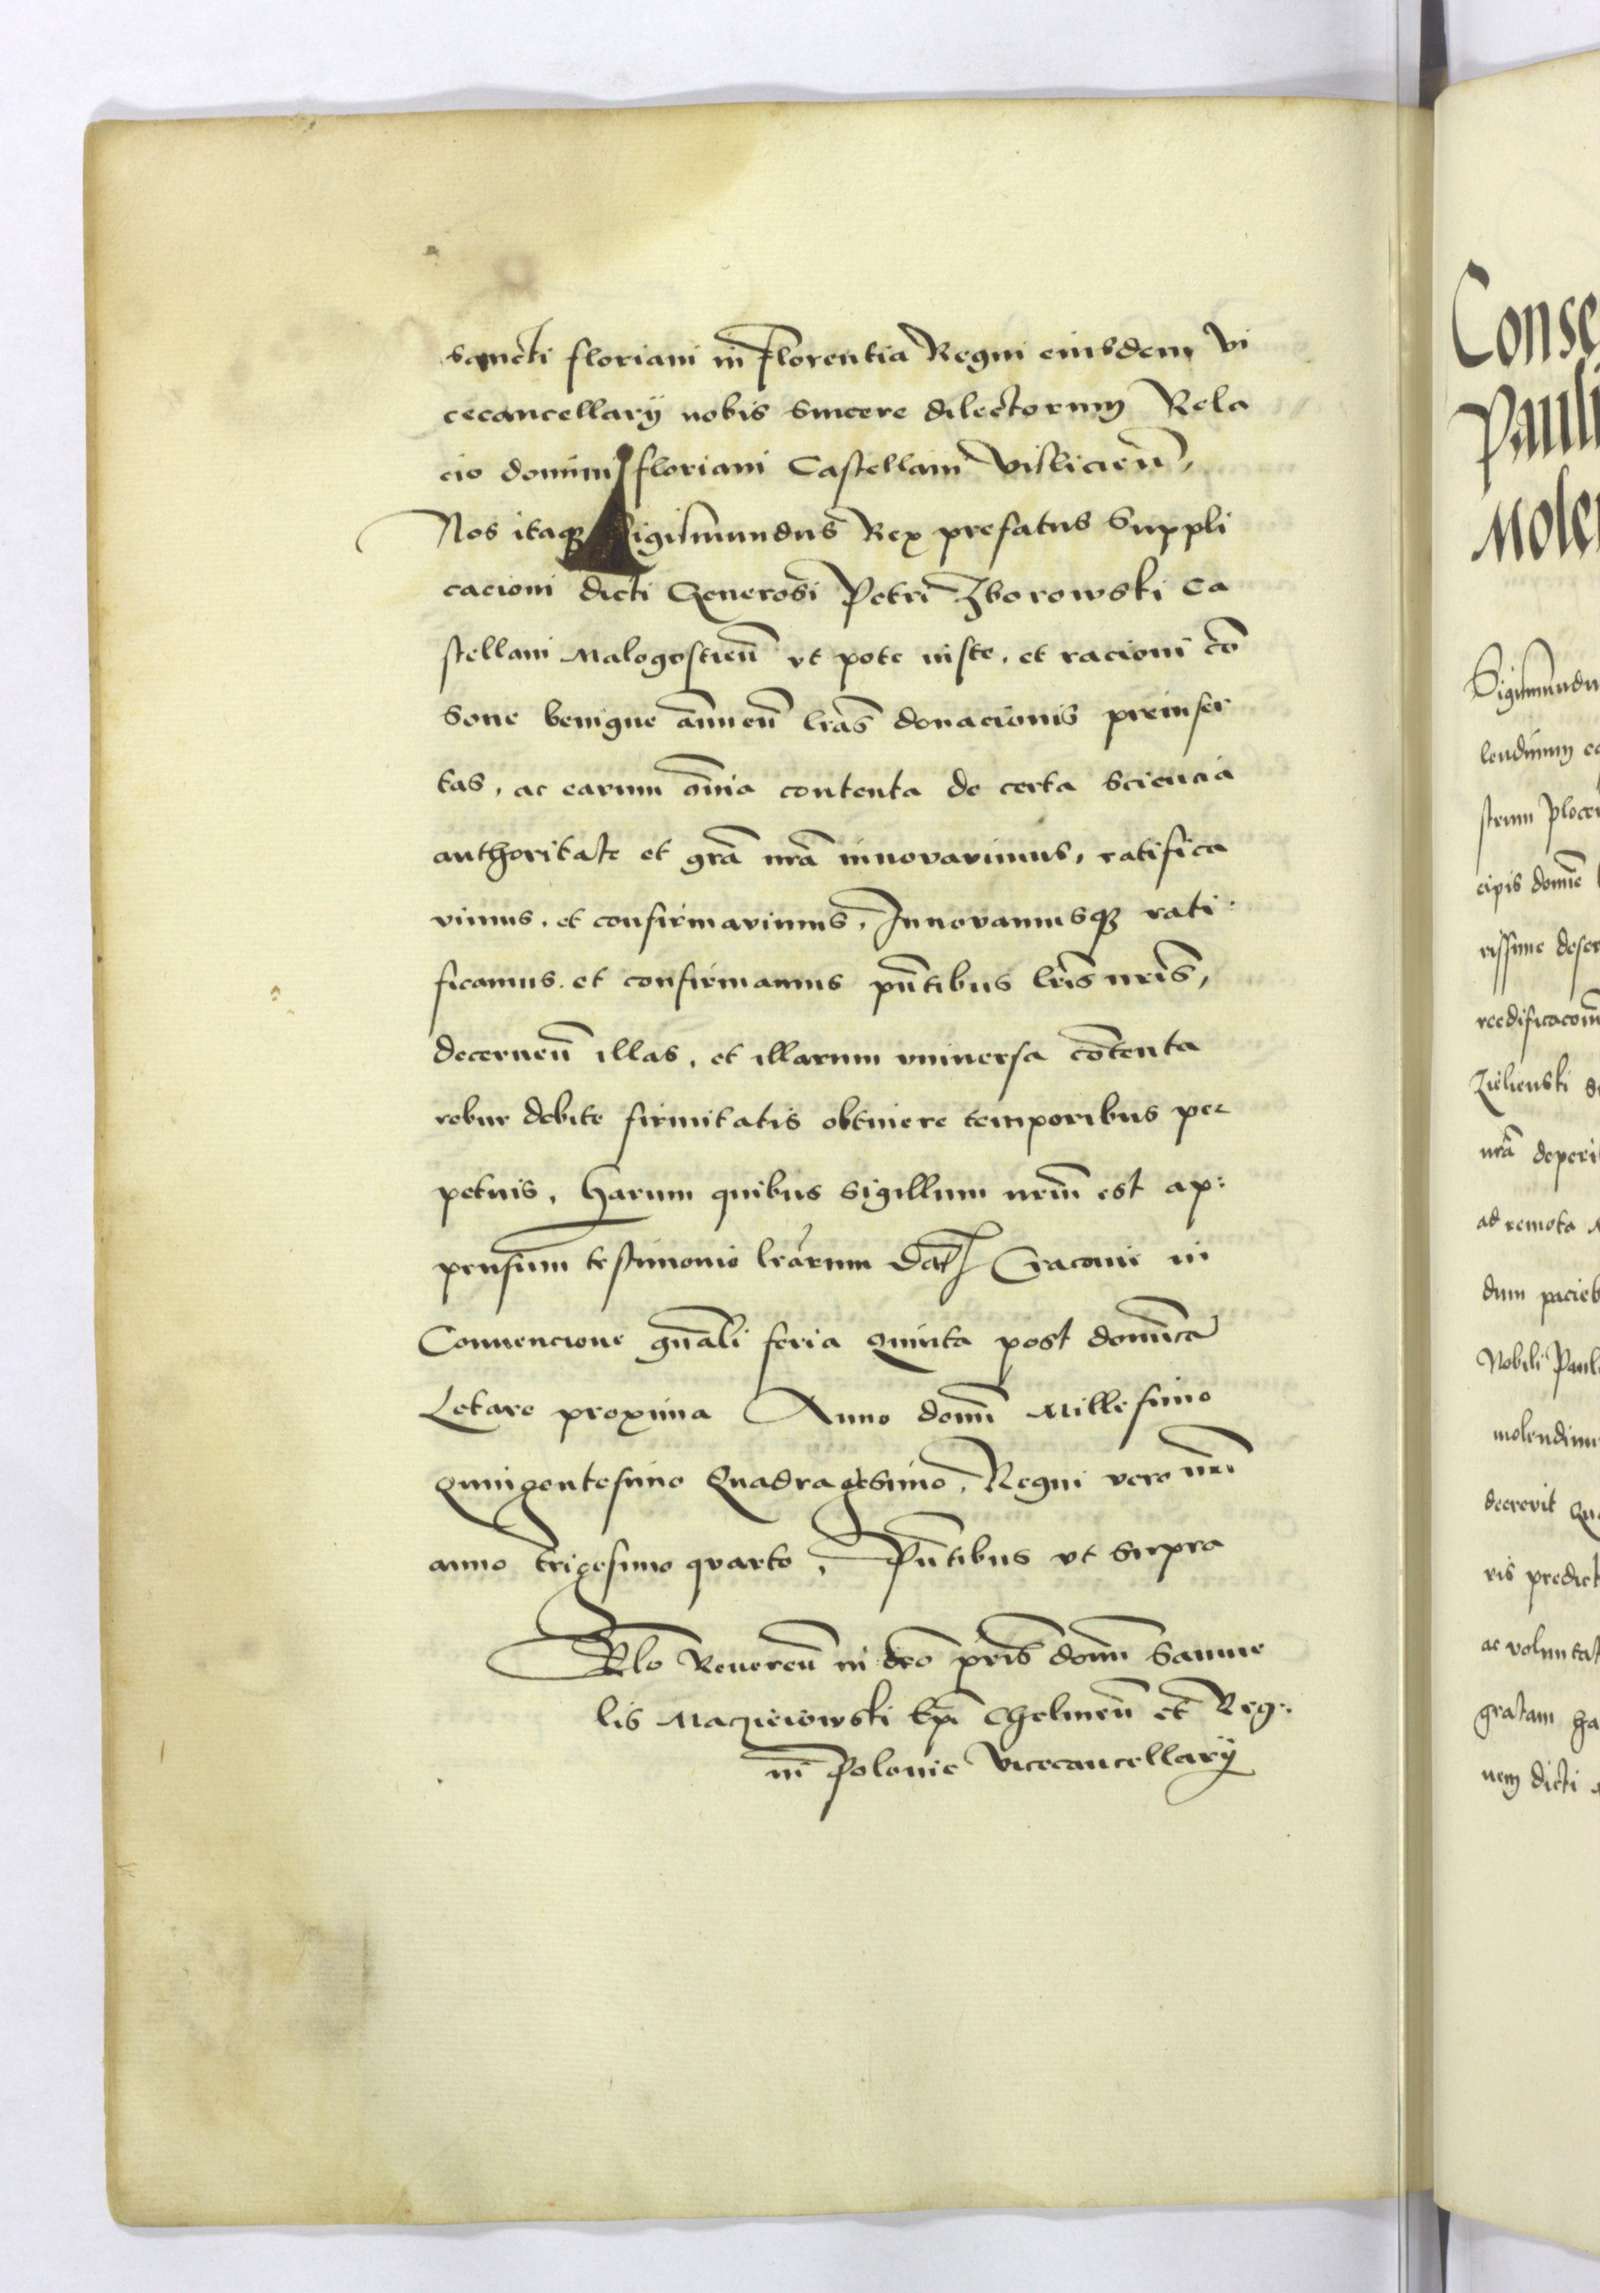 sancti floriani in Florentia Regni eiusdem Vi
cecancellarij nobis sincere dilectorum Rela
cio domini floriani Castellani Visliciēn,
Nos itaq Sigismundus Rex prefatus Suppli
cacioni dicti Generosi Petri Zborowski Ca
stellani Malogostiēn vt pote iuste, et racioni cō
sone benigne ānuēn lr̄as donacionis preinser
tas, ac earum om̄ia contenta de certa sciencia
authoritate et gr̄a nr̄a innovavimus, ratifica
vimus, et confirmavimus, Innovamusq rati
ficamus. et confirmamus pn̄tibus lr̄is nr̄is,
decernēn illas, et illarum vniuersa cōtenta
robur debite firmitatis obtinere temporibus per
petuis, harum quibus sigillum nr̄m est ap:
pensum testimonio lr̄arum Dat Cracouie in
Conuencione gn̄ali feria Quinta post domīcā
Letare proxima Anno domī Millesimo
Quingentesimo Quadragesimo, Regni vero nr̄i
anno trigesimo quarto, Pn̄tibus vt supra
Rlo Reuerēn in deo pr̄is domī Samue
lis Maczieiowski Ep̄i Chelmēn et Reg:
ni Polonie Vicecancellarij
Conse
Pauli
Mole
Sigismundu
lendinum
strum Ploce
cipis domīe
rissime deser
reedificacoīn
Zielienski
nr̄a deperi
ad remota
dum pacieb
Nobili Paul
molendinu
decrevit
ris predict
ac voluntat
gratam ha
nem dicti